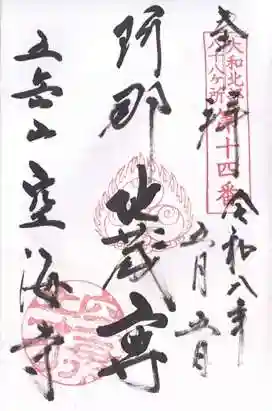 奉拝
大和北部
八十八ヶ所
第十四番
令和八年
五月五日
阿那地蔵尊
五台山空海寺